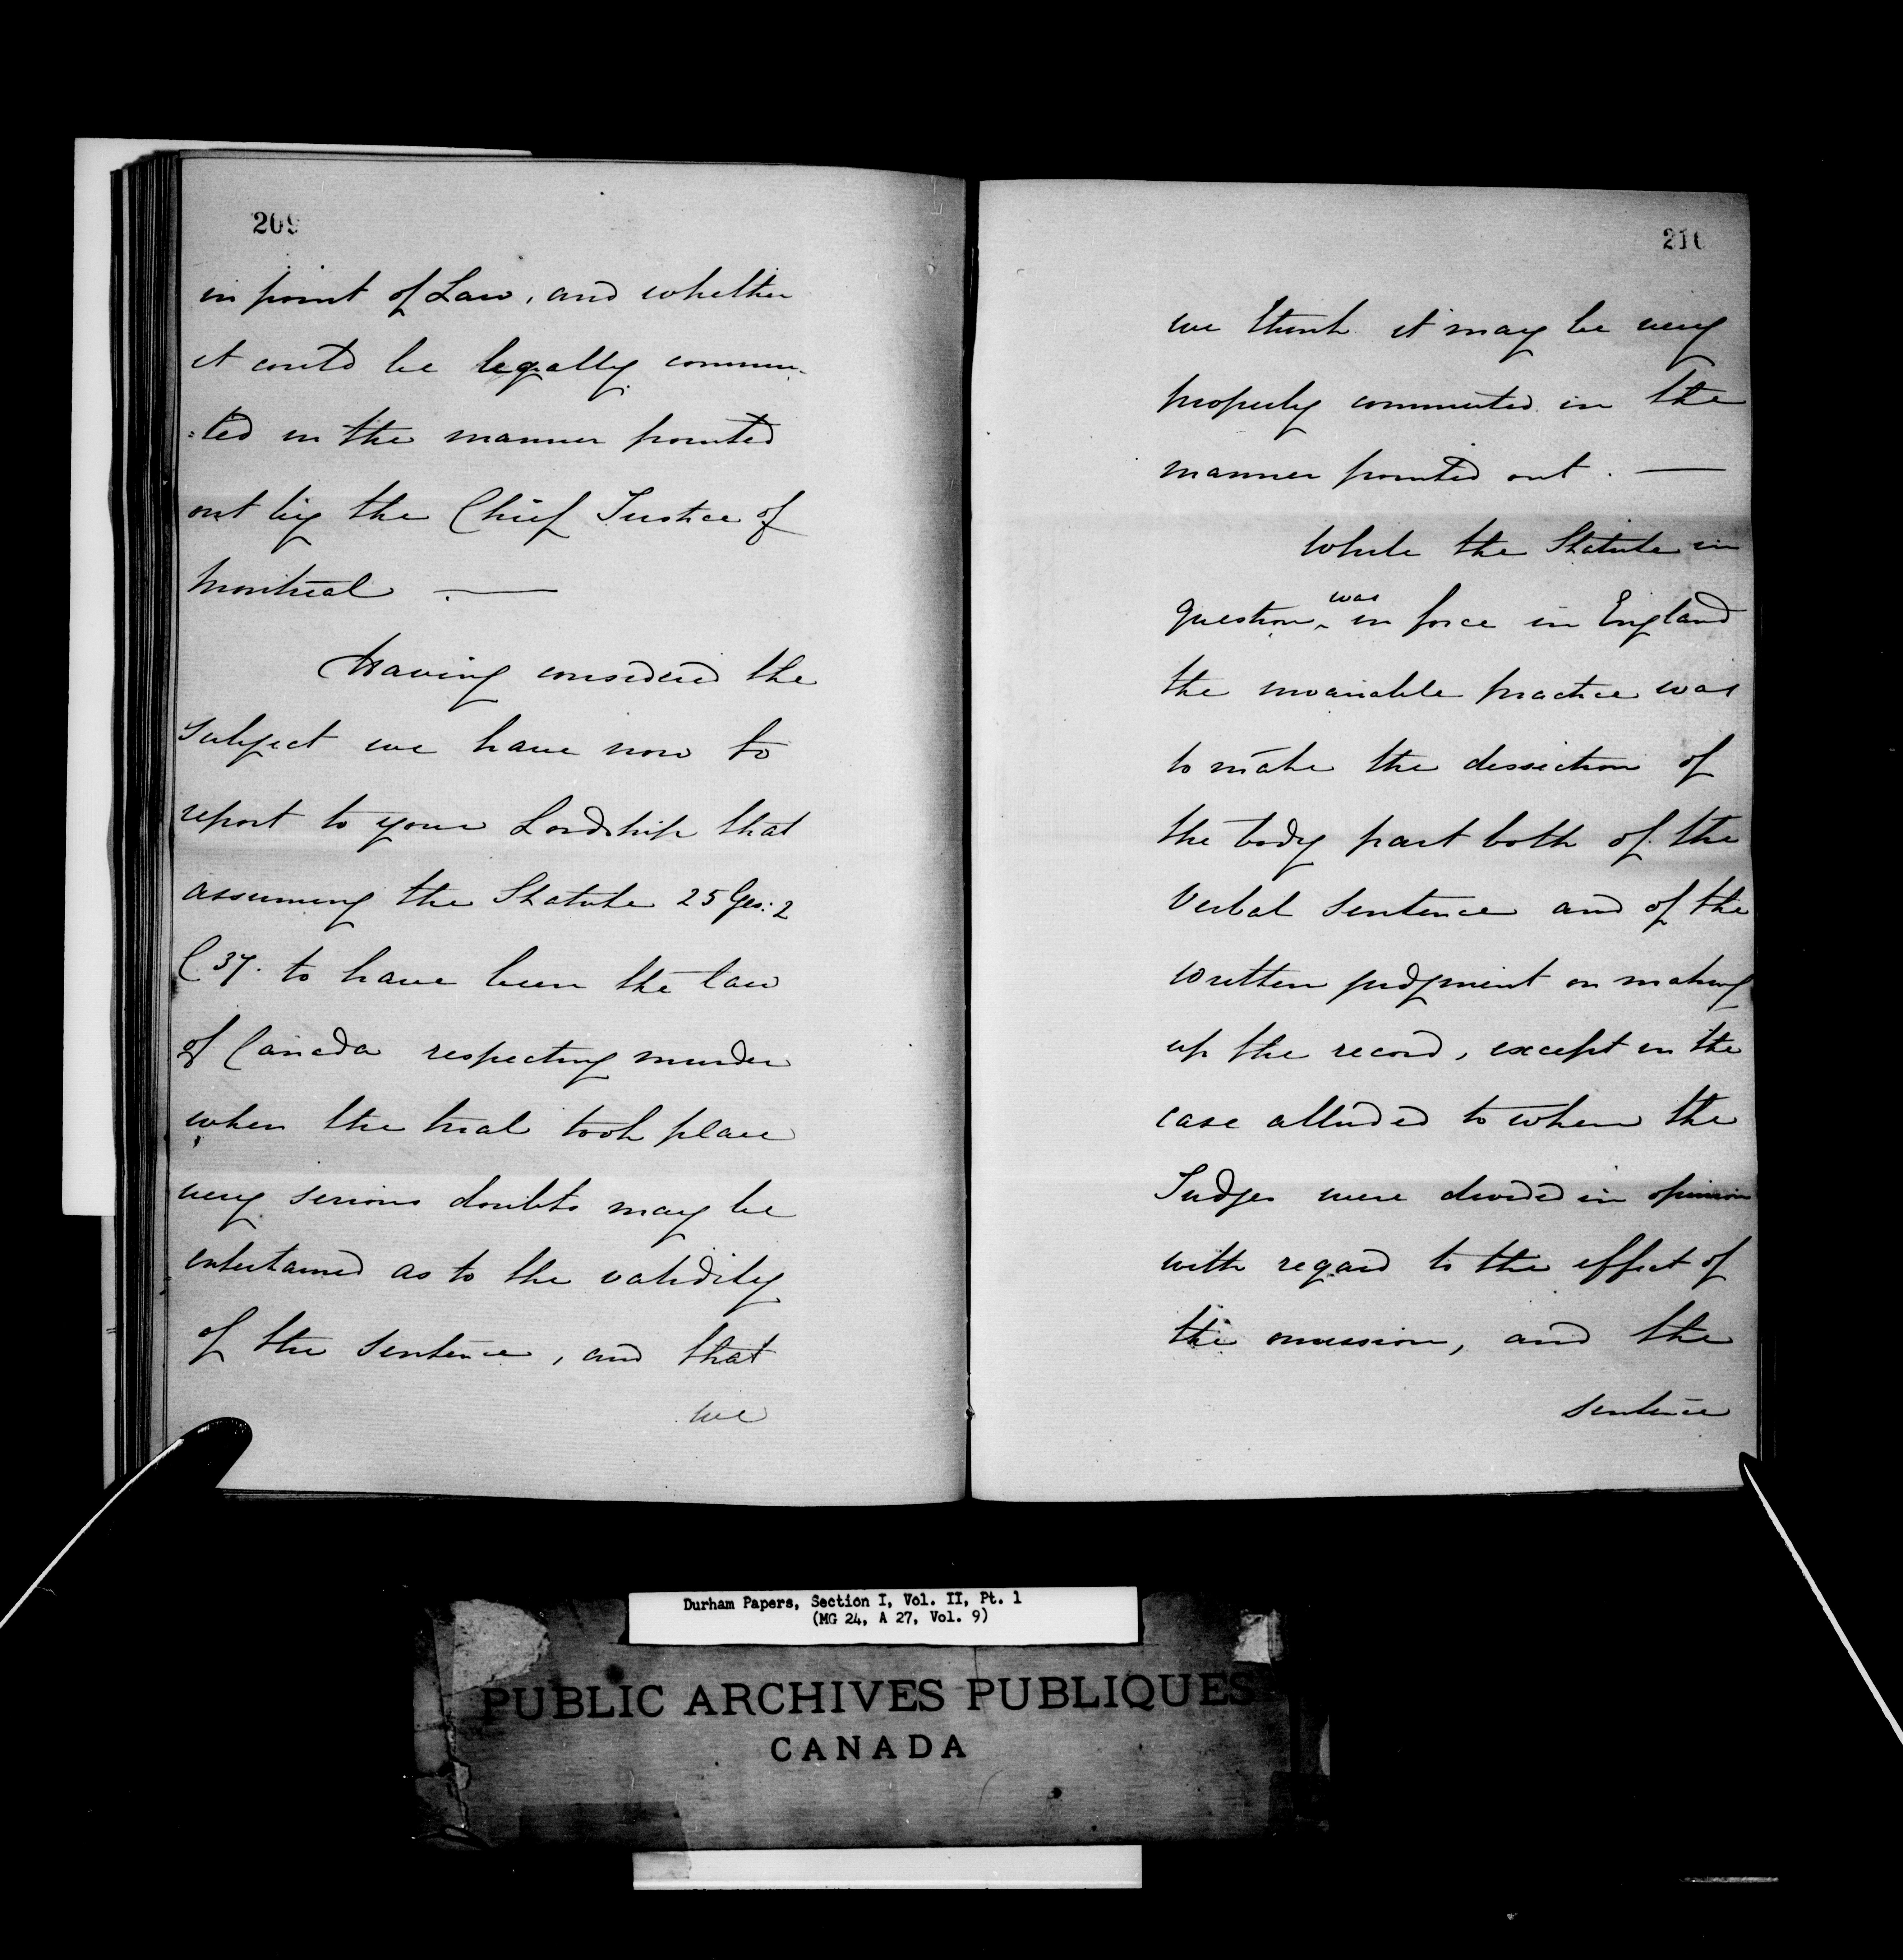 209
in point of Law, and whether
it could be legally commu-
=ted in the manner pointed
out by the Chief Justice of
Montreal . —
Having considered the
Subject we have now to
report to your Lordship that
assuming the Statute 25 Geo: 2
C 37. to have been the law
of Canada respecting murder
when the trial took place
very serious doubts may be
entertained as to the validity
of the sentence, and that
we
210
we think it may be very
properly commuted in the
manner pointed out . —
While the Statute in
question was in force in England
the invariable practice was
to make the dissection of
the body part both of the
Verbal sentence and of the
written judgment on making
up the record, except in the
case alluded to when the
Judges were divided in opinion
with regard to the effect of
the omission, and the
sentence
Durham Papers, Section I, Vol. II, Pt. 1
(MG 24, A 27, Vol. 9)
PUBLIC ARCHIVES PUBLIQUES
CANADA